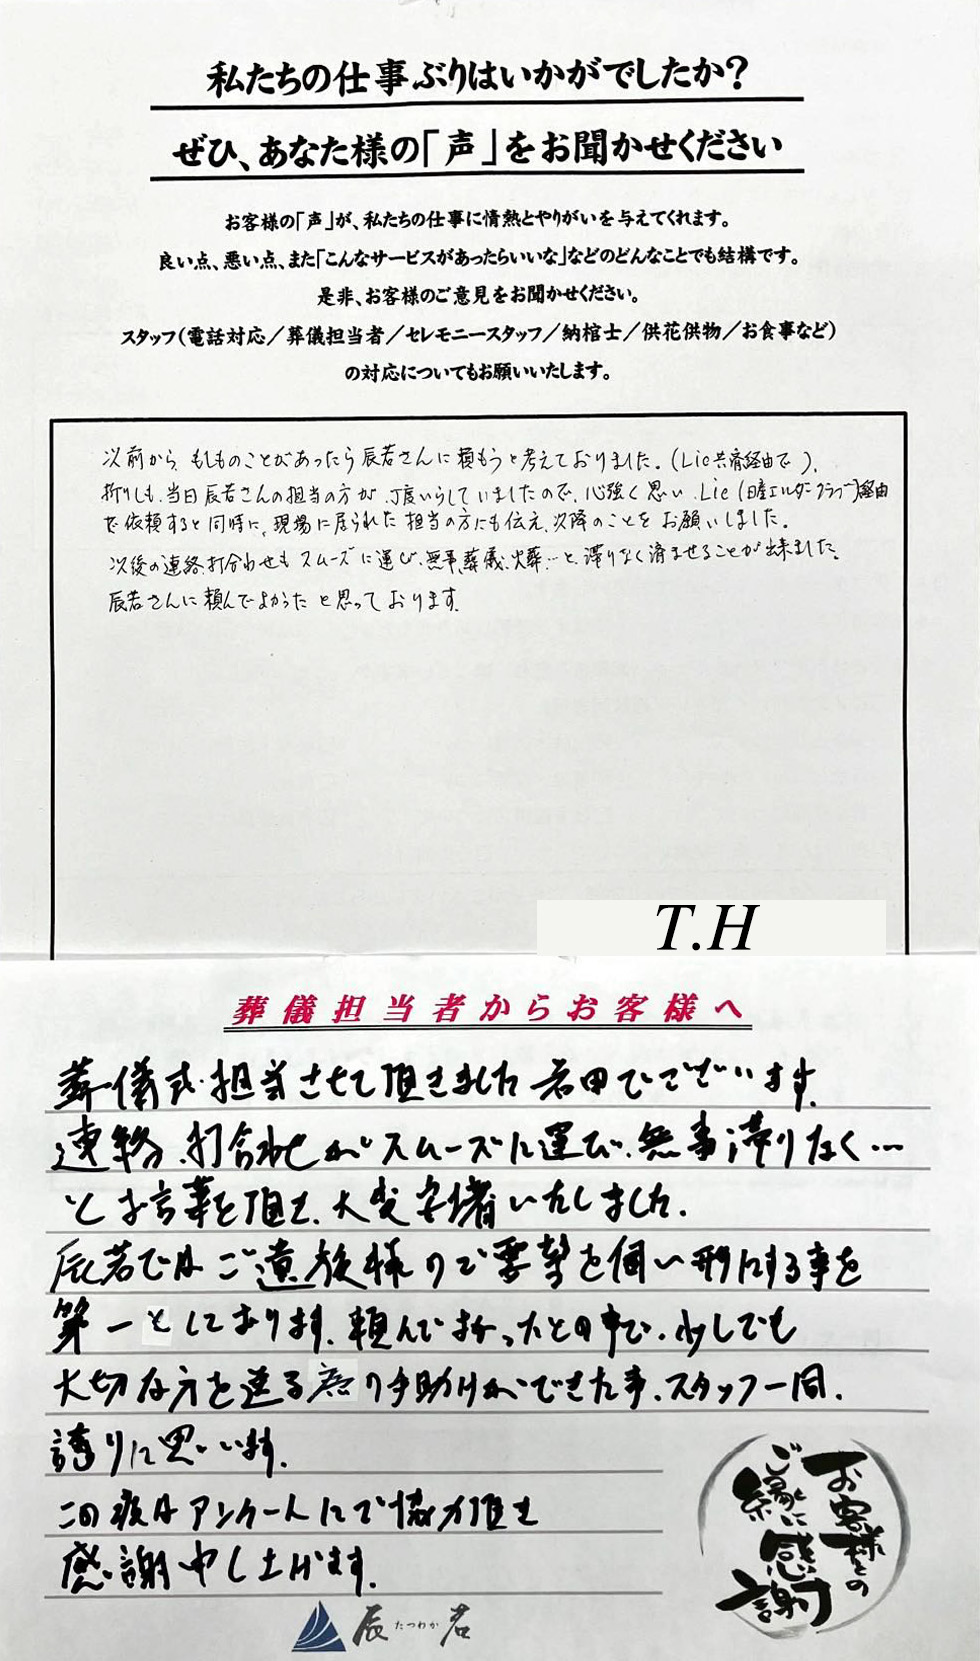 私たちの仕事ぶりはいかがでしたか?
ぜひ、あなた様の「声」をお聞かせください
お客様の「声」が、私たちの仕事に情熱とやりがいを与えてくれます。
良い点、悪い点、また「こんなサービスがあったらいいな」などのどんなことでも結構です。
是非、お客様のご意見をお聞かせください。
スタッフ(電話対応/葬儀担当者/セレモニースタッフ/納棺士/供花供物/お食事など)
の対応についてもお願いいたします。
以前から、もしものことがあったら辰若さんに頼もうと考えておりました。(Lic共済経由で)。
折りしも、当日辰若さんの担当の方が、丁度いらしていましたので、心強く思い、Lic(日産エルダークラブ)経由
で依頼すると同時に、現場に居られた担当の方にも伝え、以降のことをお願いしました。
以後の連絡、打合わせもスムーズに運び、無事、葬儀、火葬…と、滞りなく済ませることが出来ました。
辰若さんに頼んでよかったと思っております。
T.H
葬儀担当者からお客様へ
葬儀式担当させて頂きました岩田でございます。
連絡、打合わせがスムーズに運び、無事滞りなく…
とお言葉を頂き、大変安堵いたしました。
辰若ではご遺族様のご要望を伺い形にする事を
第一としております。頼んでよかったとの事で、少しでも
大切な方を送る際の手助けができた事、スタッフ一同、
誇りに思います。
この度はアンケートにご協力頂き
感謝申し上げます。
お客様との
ご縁に
感謝
辰若
たつわか